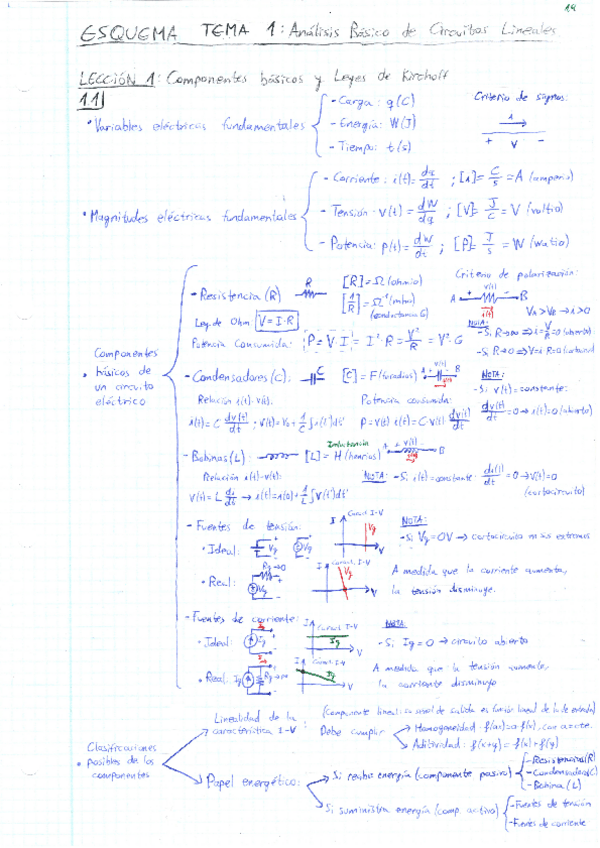 19
ESQUEMA TEMA 1: Análisis Básico de Circuitos Lineales
LECCIÓN 1: Componentes básicos y Leyes de Kirchoff
1.1
• Variables eléctricas fundamentales
- Carga: q(C)
- Energía: W(J)
- Tiempo: t(s)
Criterio de signos:
+ V -
• Magnitudes eléctricas fundamentales
- Corriente: i(t) = dq/dt ; [i] = C/s = A (amperio)
- Tensión: v(t) = dW/dq ; [V] = J/C = V (voltio)
- Potencia: p(t) = dW/dt ; [P] = J/s = W (watio)
• Componentes básicos de un circuito eléctrico
- Resistencia (R) R [R] = Ω (ohmio)
[1/R] = Ω⁻¹ (mho) (conductancia G)
Criterio de polarización:
A + v(t) - B
i(t)
VA > VB → i > 0
Ley de Ohm V = I·R
Potencia consumida: P = V·I = I²·R = V²/R = V²·G
NOTA:
- Si R→∞ ⇒ i = V/R = 0 (abierto)
- Si R→0 ⇒ V = i·R = 0 (cortocircuito)
- Condensadores (C): C [C] = F (faradios) A + v(t) - B
NOTA:
- Si v(t) = constante:
dv(t)/dt = 0 → i(t) = 0 (abierto)
Relación i(t)-v(t): Potencia consumida:
i(t) = C dv(t)/dt ; v(t) = V₀ + 1/C ∫ i(t')dt' p = v(t)·i(t) = C·v(t) dv(t)/dt
- Bobinas (L): Inductancia [L] = H (henrios) A + v(t) - B
Relación i(t)-v(t): NOTA: - Si i(t) = constante: di(t)/dt = 0 → v(t) = 0 (cortocircuito)
v(t) = L di/dt → i(t) = i(0) + 1/L ∫ v(t')dt'
- Fuentes de tensión: I Curva I-V Vg V
NOTA:
- Si Vg = 0V → cortocircuito en sus extremos
• Ideal: Vg Vg
• Real: Rg→0 Vg I Curva I-V V
A medida que la corriente aumenta,
la tensión disminuye.
- Fuentes de corriente: I Curva I-V Ig V
NOTA
- Si Ig = 0 → circuito abierto
• Ideal: Ig
• Real: Ig Rg→∞ I Curva I-V Ig V
A medida que la tensión aumenta,
la corriente disminuye
• Clasificaciones posibles de los componentes
Linealidad de la característica I-V:
(Componente lineal: su señal de salida es función lineal de la de entrada)
Debe cumplir
Homogeneidad: f(ax) = a·f(x), con a = cte.
Aditividad: f(x+y) = f(x) + f(y)
Papel energético:
Si recibe energía (componente pasivo)
- Resistencias (R)
- Condensador (C)
- Bobina (L)
Si suministra energía (comp. activo)
- Fuentes de tensión
- Fuentes de corriente